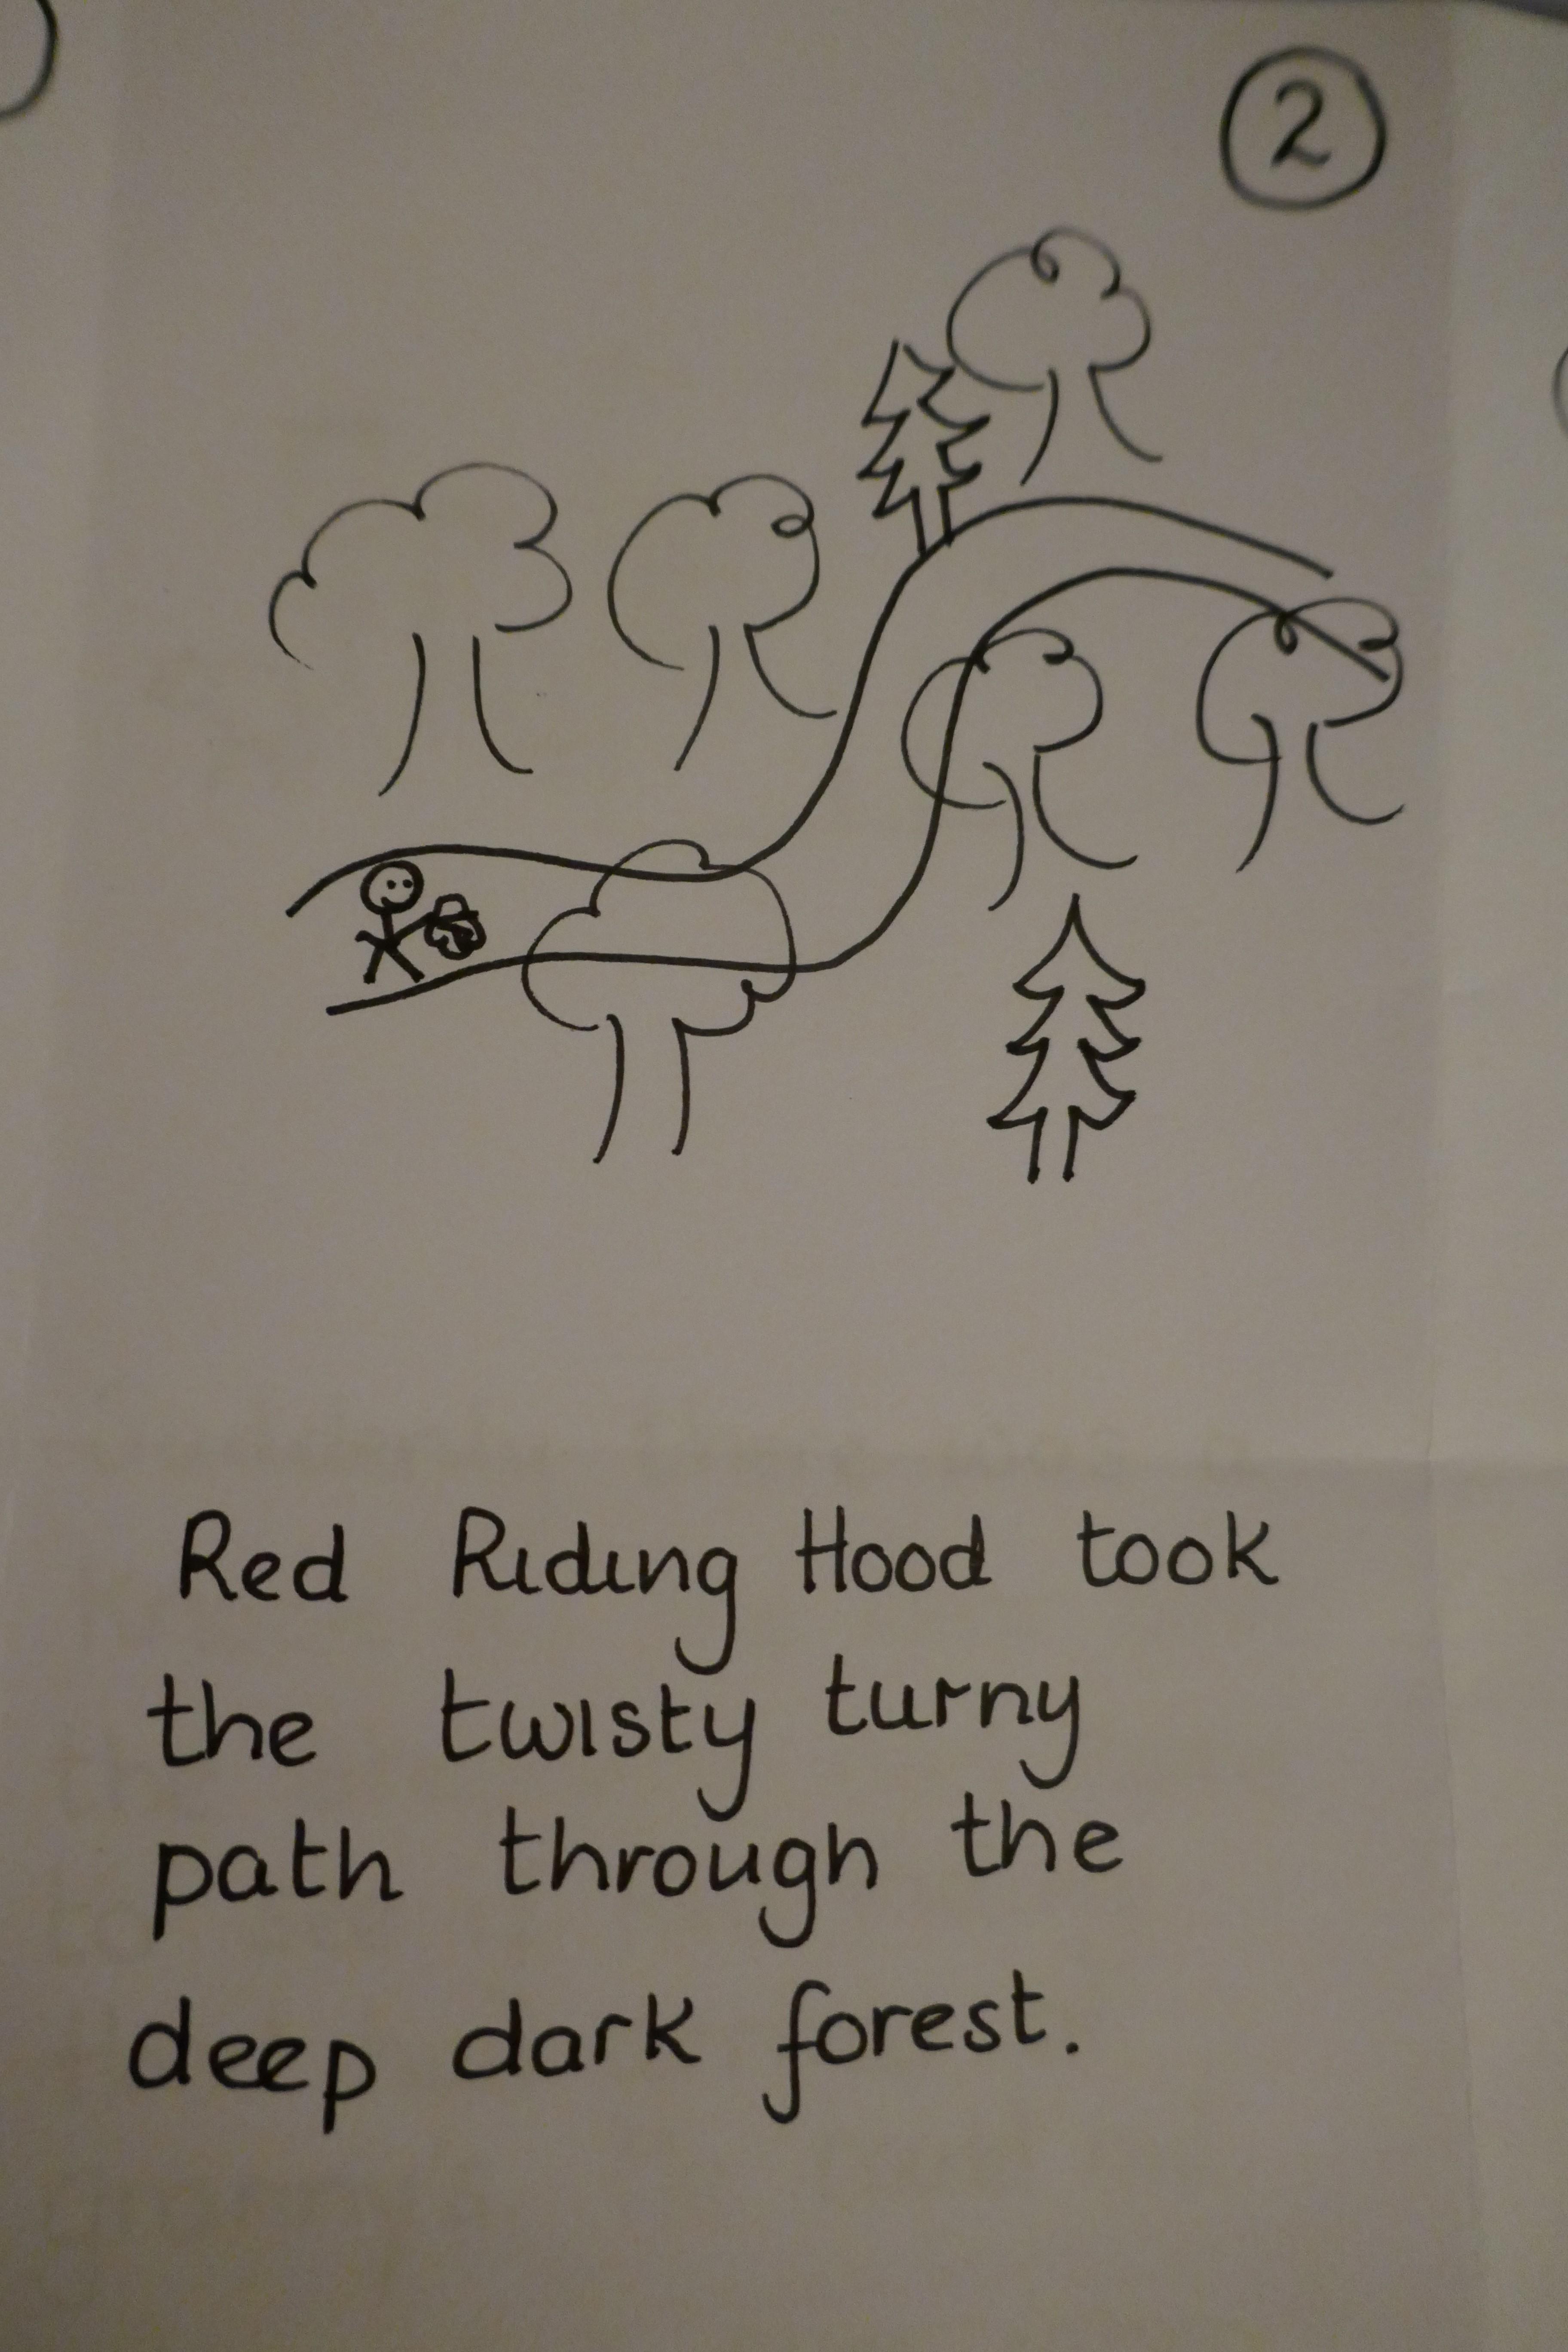 2
Red Riding Hood took
the twisty turny
path through the
deep dark forest.